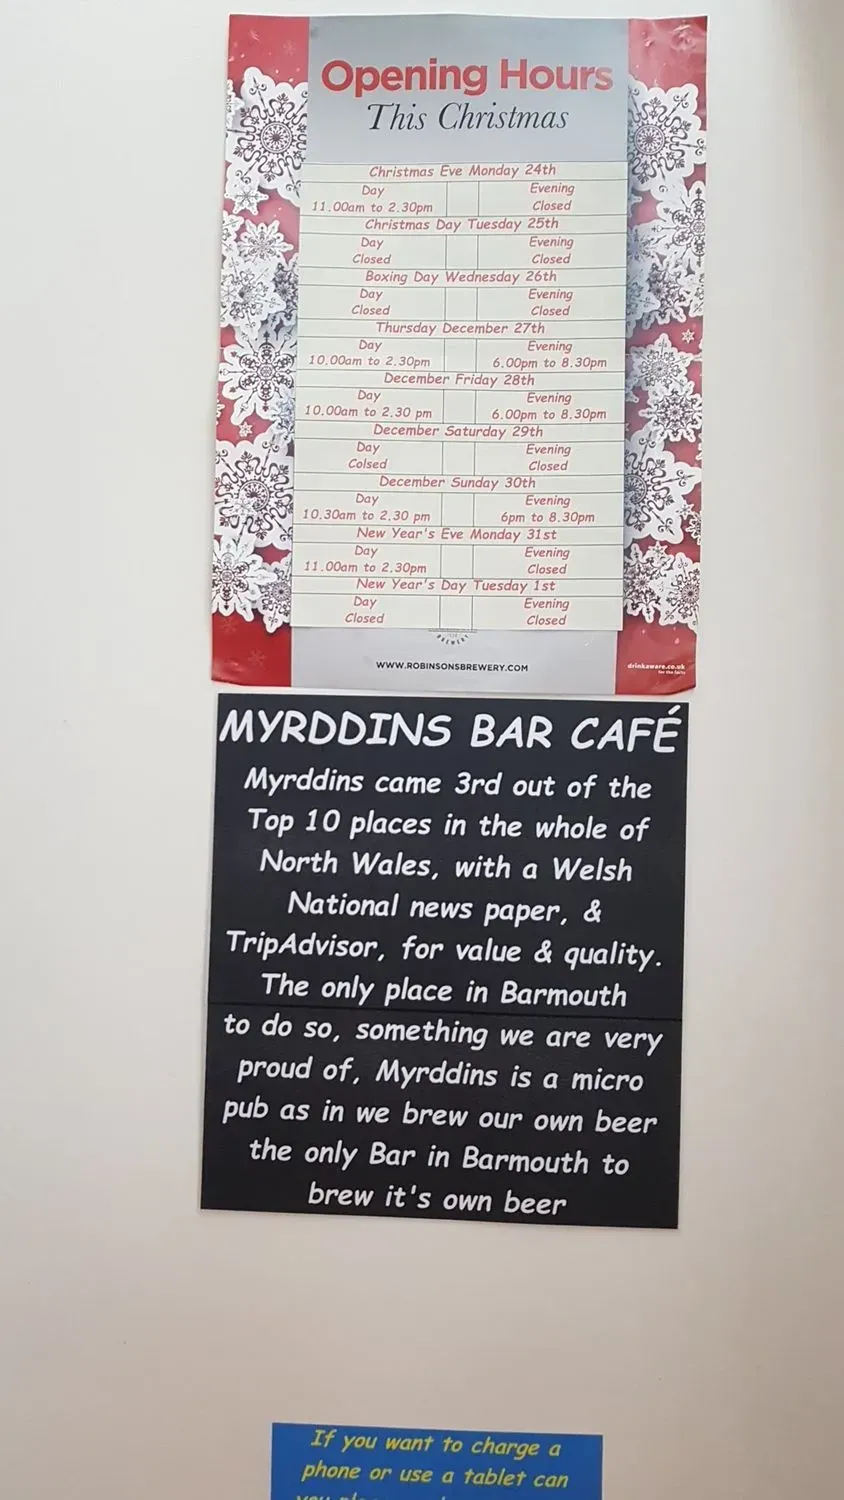 Opening Hours
This Christmas
Christmas Eve Monday 24th
Day Evening
11.00am to 2.30pm Closed
Christmas Day Tuesday 25th
Day Evening
Closed Closed
Boxing Day Wednesday 26th
Day Evening
Closed Closed
Thursday December 27th
Day Evening
10.00am to 2.30pm 6.00pm to 8.30pm
December Friday 28th
Day Evening
10.00am to 2.30 pm 6.00pm to 8.30pm
December Saturday 29th
Day Evening
Colsed Closed
December Sunday 30th
Day Evening
10.30am to 2.30 pm 6pm to 8.30pm
New Year's Eve Monday 31st
Day Evening
11.00am to 2.30pm Closed
New Year's Day Tuesday 1st
Day Evening
Closed Closed
BREWERY
WWW.ROBINSONSBREWERY.COM
drinkaware.co.uk
for the facts
MYRDDINS BAR CAFÉ
Myrddins came 3rd out of the
Top 10 places in the whole of
North Wales, with a Welsh
National news paper, &
TripAdvisor, for value & quality.
The only place in Barmouth
to do so, something we are very
proud of, Myrddins is a micro
pub as in we brew our own beer
the only Bar in Barmouth to
brew it's own beer
If you want to charge a
phone or use a tablet can